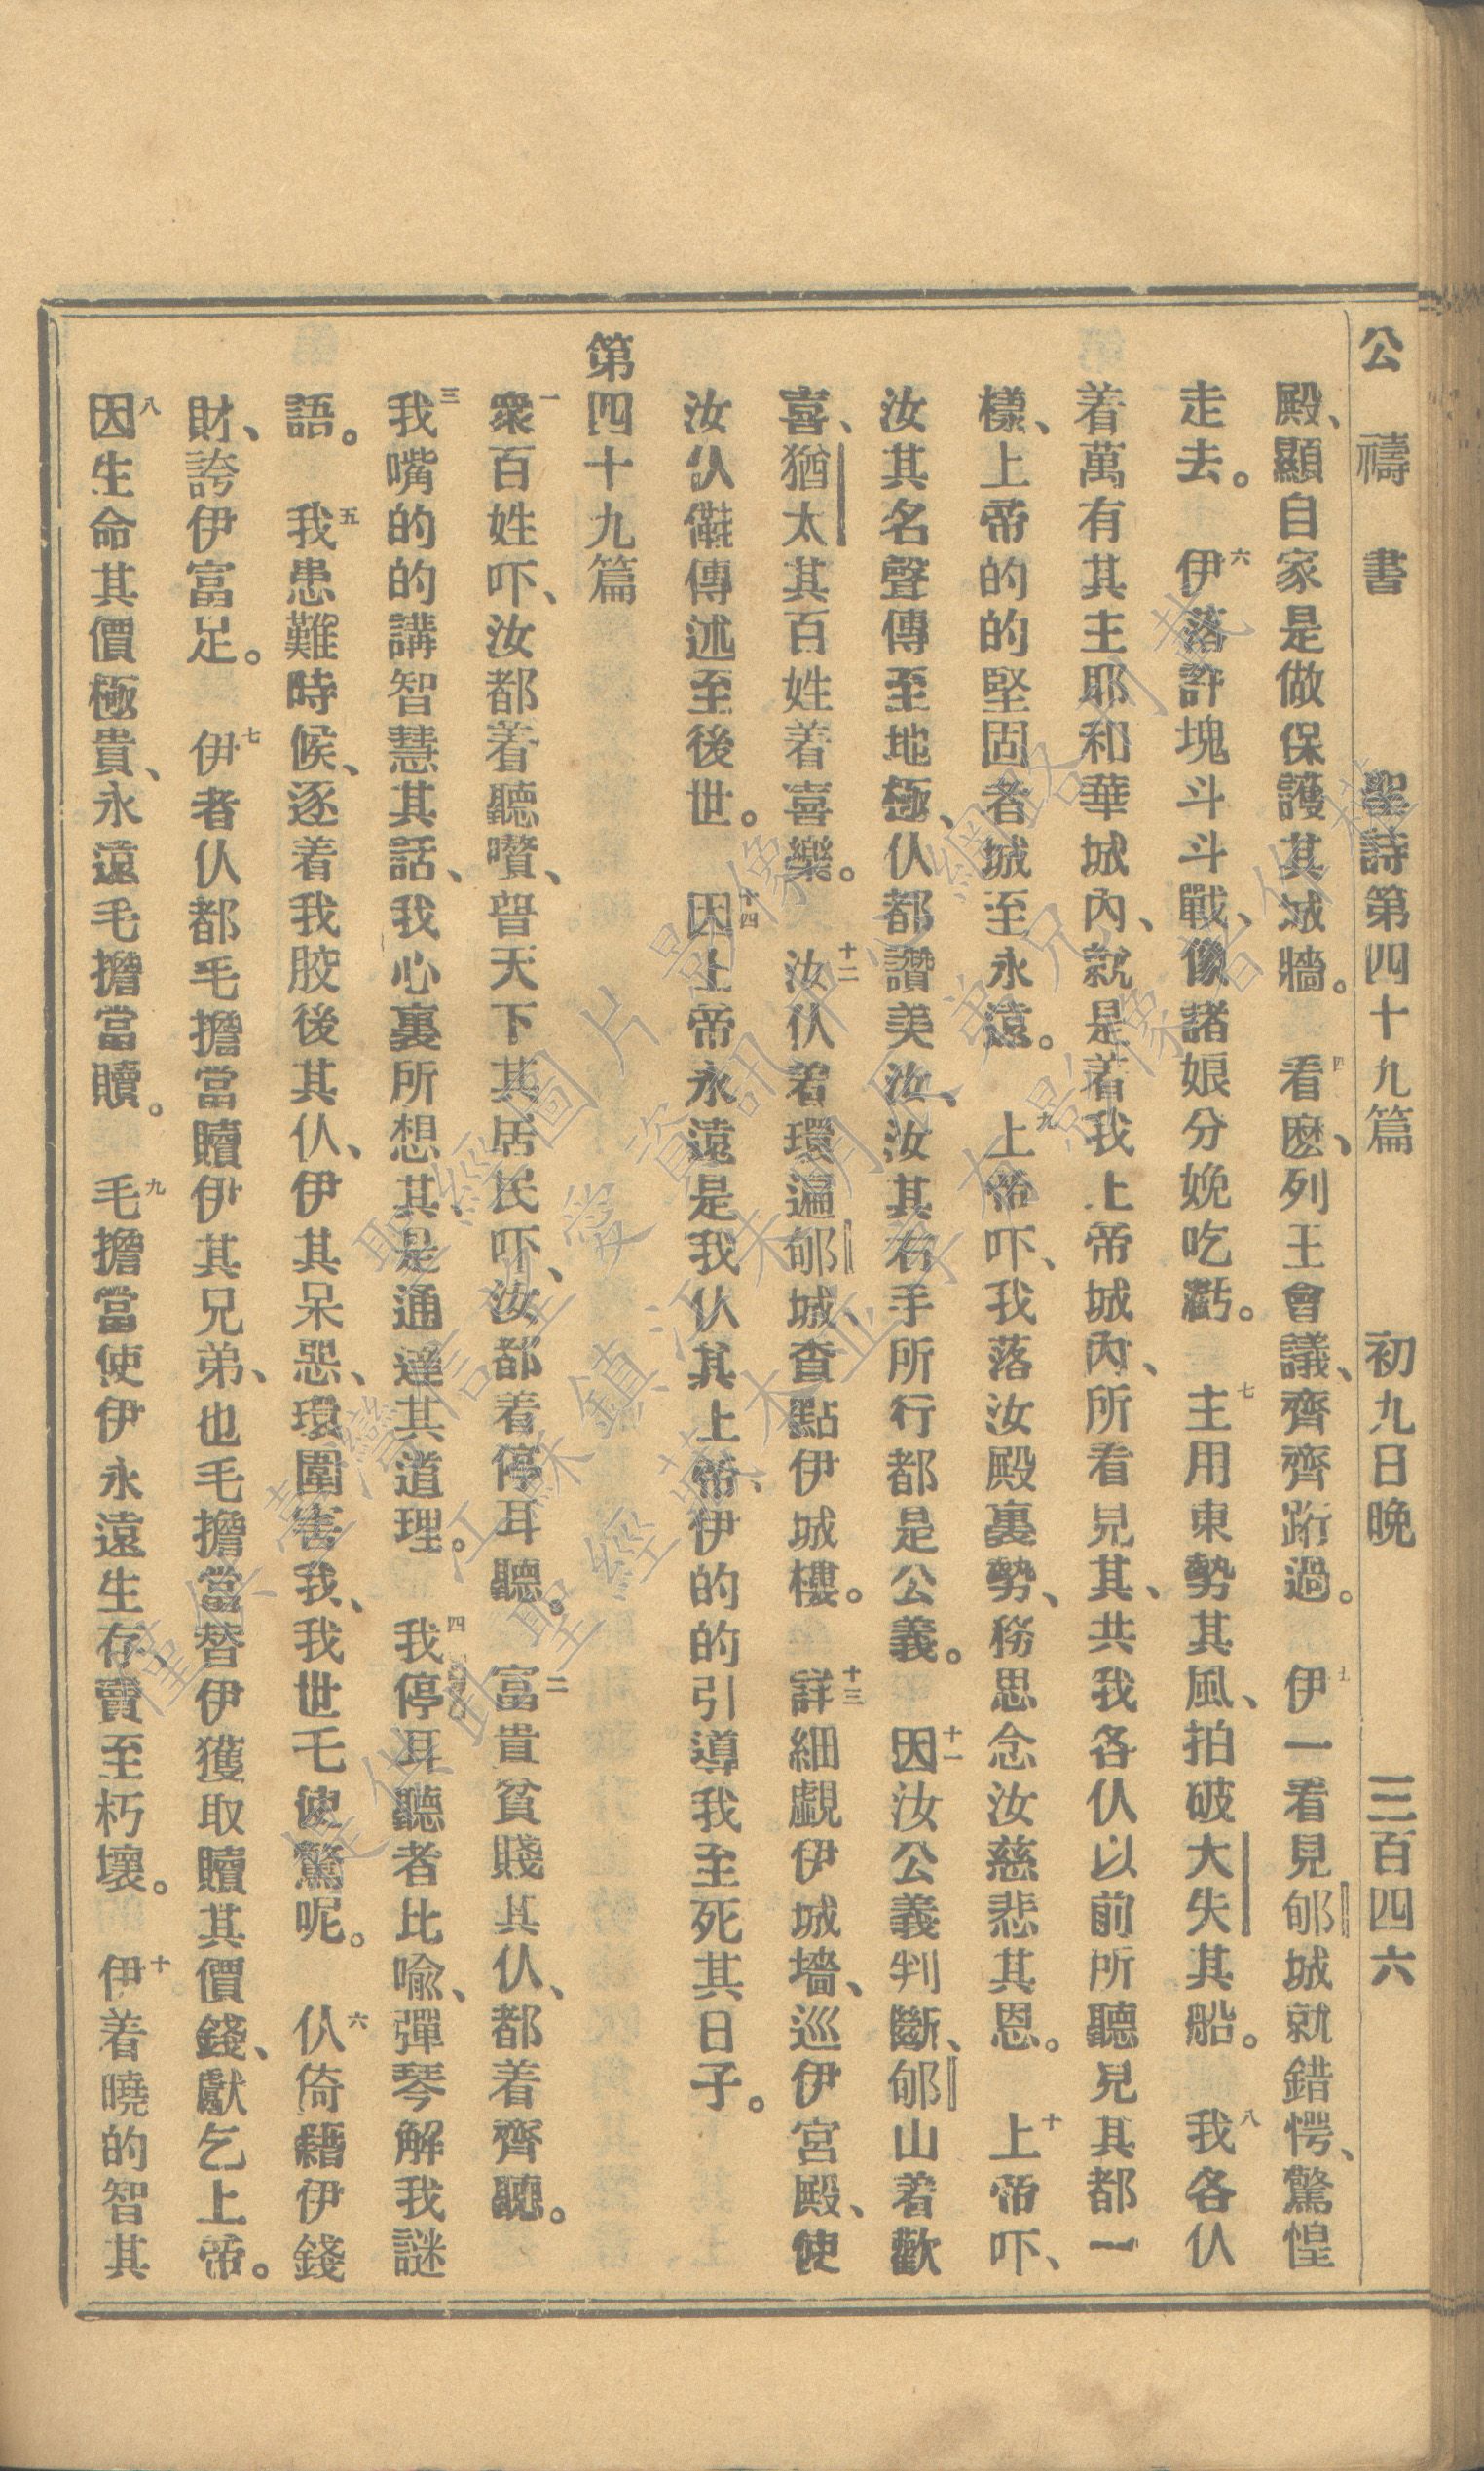 公禱書 聖詩第四十九篇 初九日晚 三百四六
殿、顯自家是做保護其城牆。四看麽、列王會議、齊齊跨過。五伊一看見郇城就錯愕、驚惶
走去。六伊落許塊斗斗戰、像諸娘分娩吃虧。七主用東勢其風、拍破大失其船。八我各仈
着萬有其主耶和華城內、就是着我上帝城內、所看見其、共我各仈以前所聽見其都一
樣、上帝的的堅固者城至永遠。九上帝吓、我落汝殿裏勢、務思念汝慈悲其恩。十上帝吓、
汝其名聲傳至地極、仈都讚美汝、汝其右手所行都是公義。十一因汝公義判斷、郇山着歡
喜、猶太其百姓着喜樂。十二汝仈着環遍郇城、查點伊城樓。十三詳細覷伊城墻、巡伊宮殿、使
汝仈傳述至後世。十四因上帝永遠是我仈其上帝、伊的的引導我至死其日子。
第四十九篇
一衆百姓吓、汝都着聽囋、普天下其居民吓、汝都着停耳聽。二富貴貧賤其仈、都着齊聽。
三我嘴的的講智慧其話、我心裏所想其、是通達其道理。四我停耳聽者比喻、彈琴解我謎
語。五我患難時候、逐着我骹後其仈、伊其呆惡、環圍害我、我世乇使驚呢。六仈倚藉伊錢
財、誇伊富足。七伊者仈都毛擔當贖伊其兄弟、也毛擔當替伊獲取贖其價錢、獻乞上帝。
八因生命其價極貴、永遠毛擔當贖。九毛擔當使伊永遠生存賣至朽壞。十伊着曉的智其